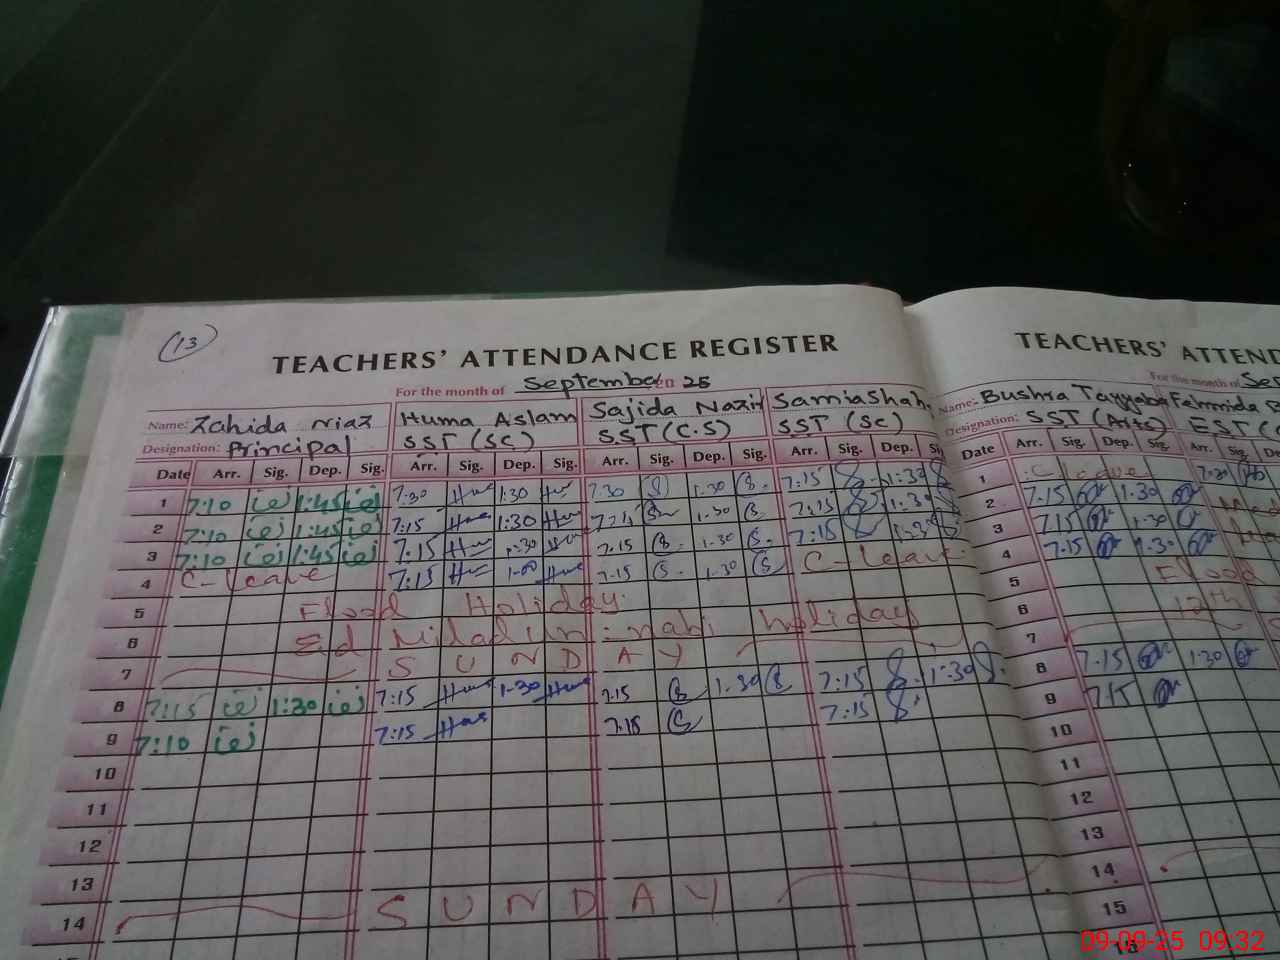 13
TEACHERS' ATTENDANCE REGISTER
For the month of September 25
Name: Zahida Niaz Huma Aslam Sajida Nazir Samia Shah
Designation: Principal SST (SC) SST (C.S) SST (SC)
Date Arr. Sig. Dep. Sig. Arr. Sig. Dep. Sig. Arr. Sig. Dep. Sig. Arr. Sig. Dep. Sig.
1 7:10 1:45 7:30 1:30 7:30 1:30 7:15 1:30
2 7:10 1:45 7:15 1:30 7:15 1:30 7:15 1:30
3 7:10 1:45 7:15 1:30 7:15 1:30 7:15 1:30
4 C-leave 7:15 7:15 1:30 C-leave
5 Flood Holiday
6 Ed Milad un-nabi holiday
7 SUNDAY
8 7:15 1:30 7:15 1:30 7:15 1:30 7:15 1:30
9 7:10 7:15 7:15 7:15
10
11
12
13
14 SUNDAY
TEACHERS' ATTEND
For the month of Sep
Name: Bushra Tayyaba Fehmida
Designation: SST (Arts) EST
Date Arr. Sig. Dep. Sig. Arr. Sig. De
1 C leave 7:30
2 7:15 1:30
3 7:15 1:30
4 7:15 1:30
5 Flood
6 12th
7
8 7:15 1:30
9 7:15
10
11
12
13
14
15
16
09-09-25 09:32